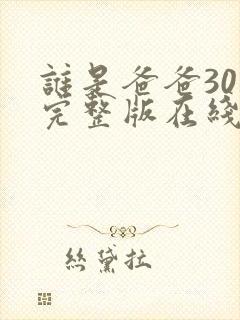 誰是爸爸30
完整版在綫
絲黛拉